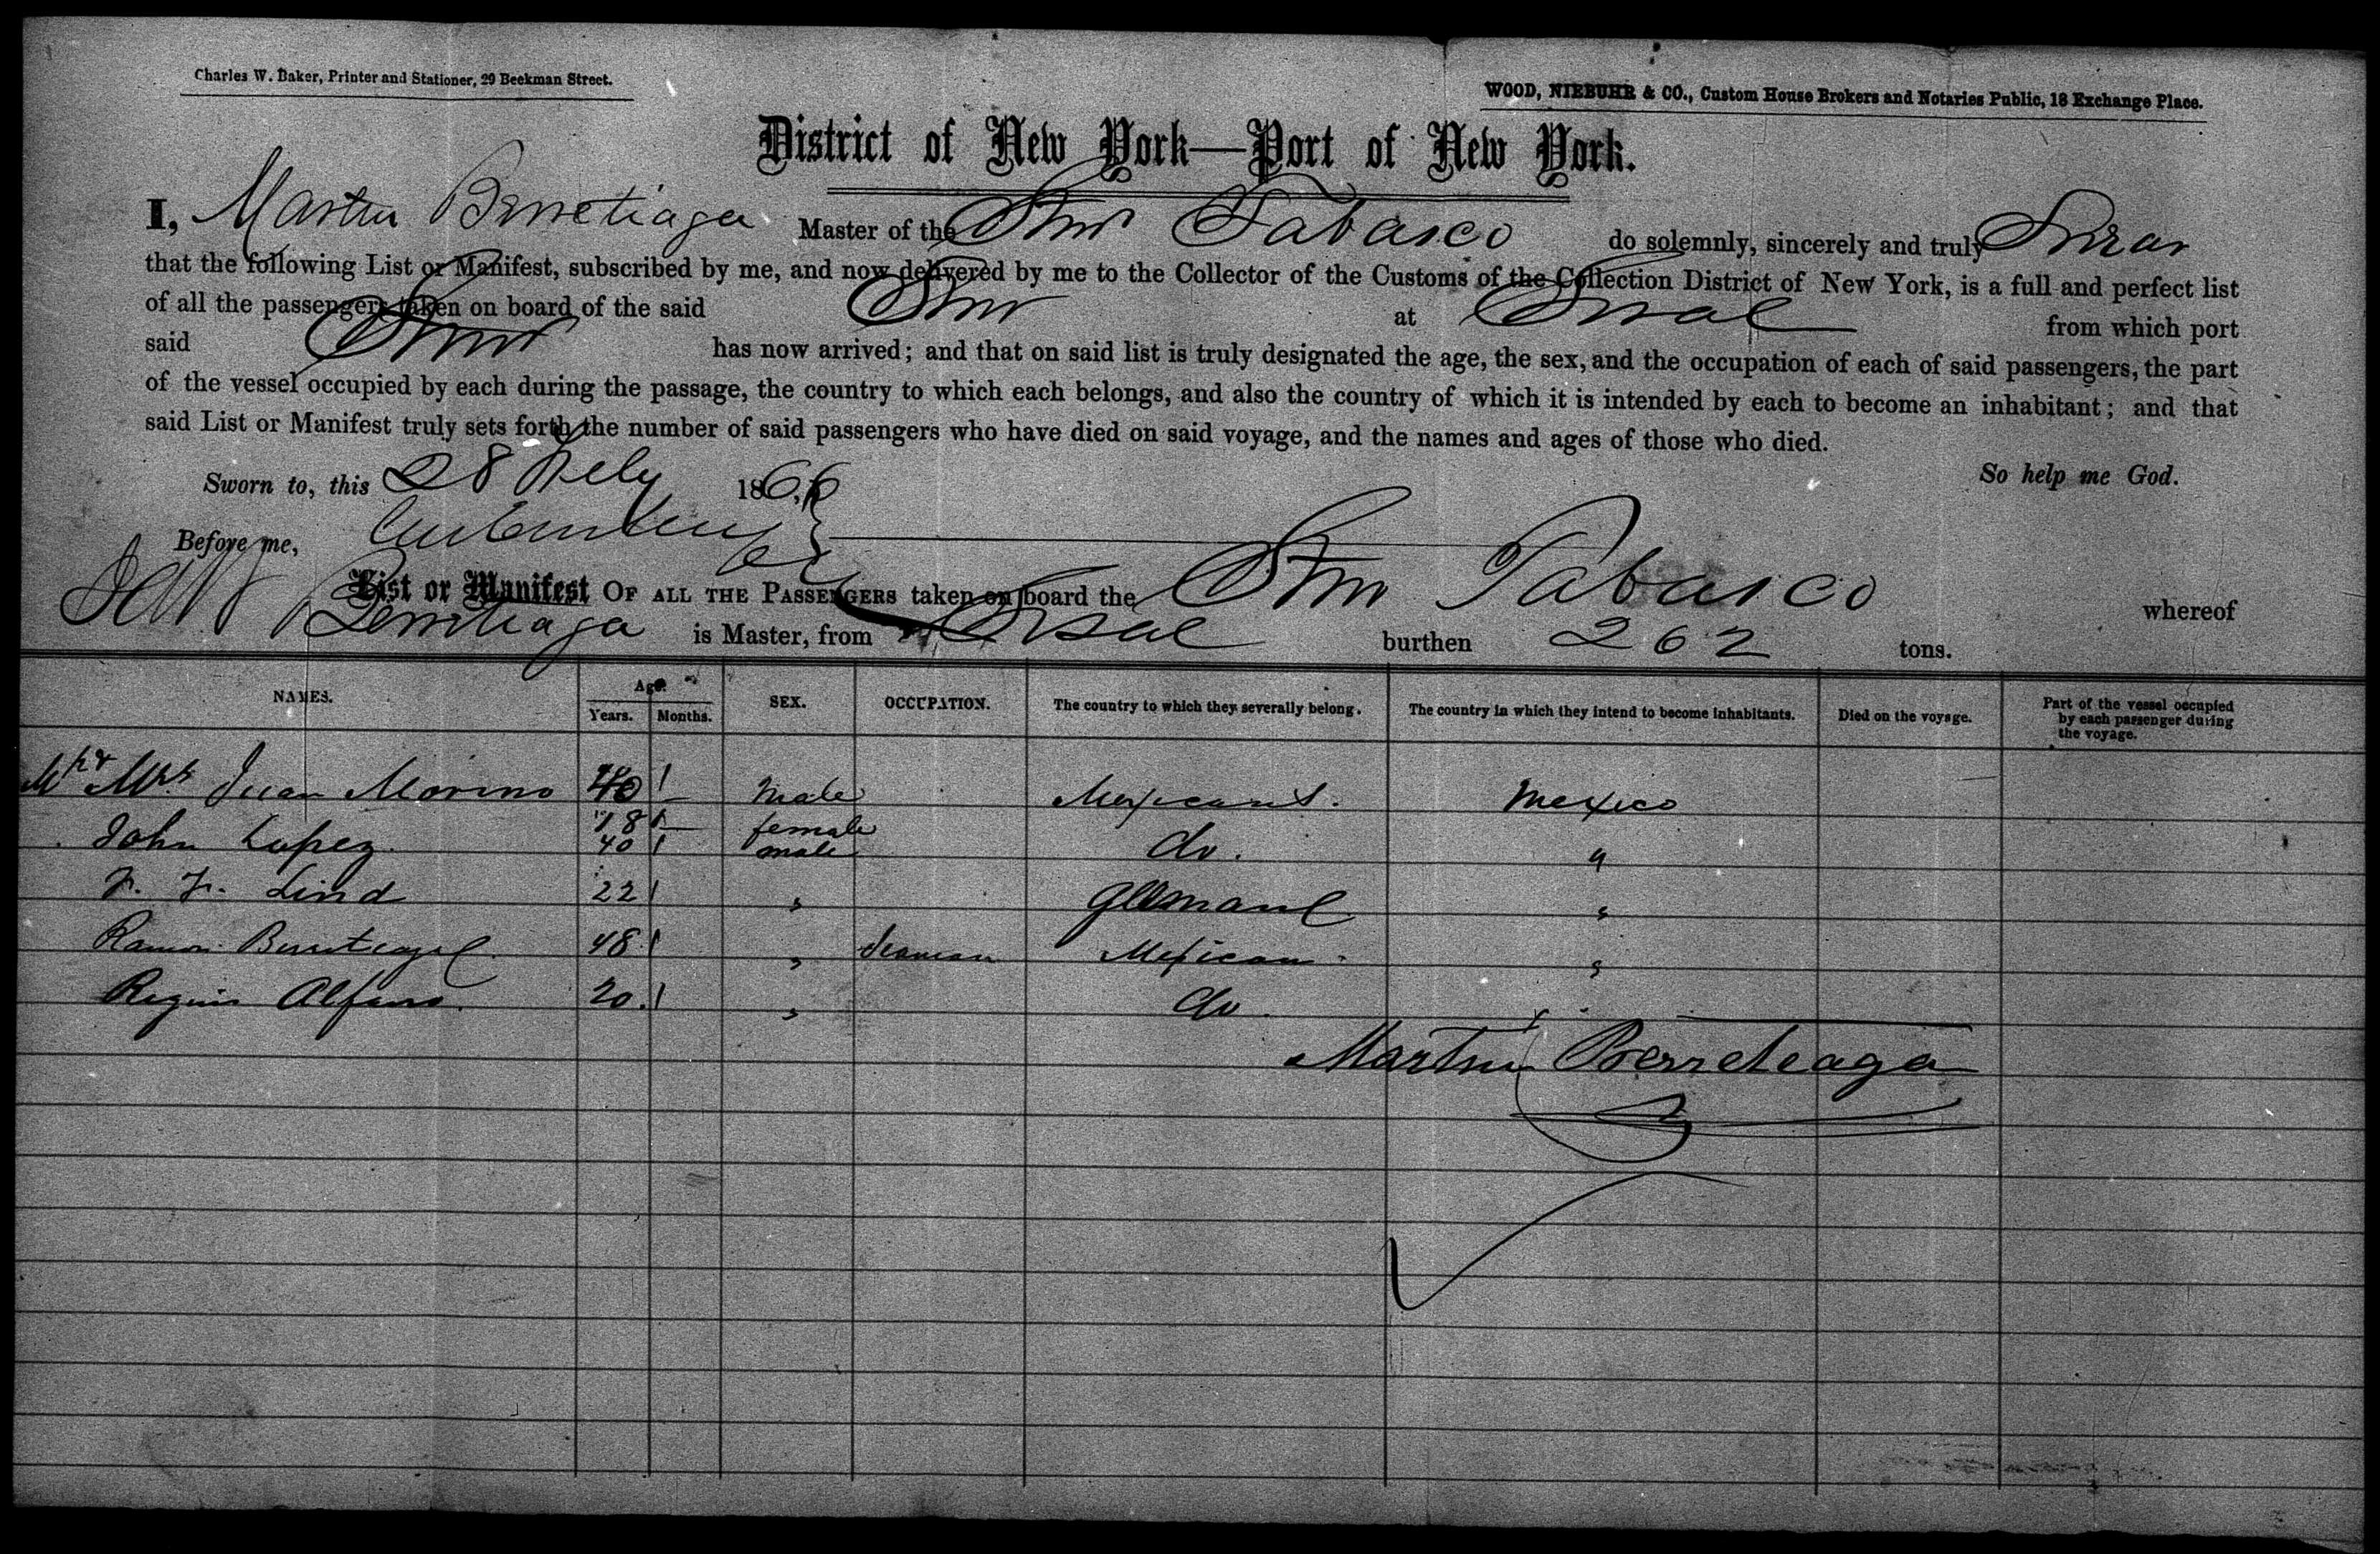 Charles W. Baker, Printer and Stationer, 29 Beekman Street.
WOOD, NIEBUHR & CO., Custom House Brokers and Notaries Public, 18 Exchange Place.
District of New York—Port of New York.
I, Martin Berreteaga Master of the Stmr Tabasco do solemnly, sincerely and truly Swear
that the following List or Manifest, subscribed by me, and now delivered by me to the Collector of the Customs of the Collection District of New York, is a full and perfect list
of all the passengers taken on board of the said Stmr at Sisal from which port
said Stmr has now arrived; and that on said list is truly designated the age, the sex, and the occupation of each of said passengers, the part
of the vessel occupied by each during the passage, the country to which each belongs, and also the country of which it is intended by each to become an inhabitant; and that
said List or Manifest truly sets forth the number of said passengers who have died on said voyage, and the names and ages of those who died.
So help me God.
Sworn to, this 28 July 1866
Before me,
List or Manifest OF ALL THE PASSENGERS taken on board the Stmr Tabasco whereof
Berreteaga is Master, from Sisal burthen 262 tons.
NAMES. Age. Years. Months. SEX. OCCUPATION. The country to which they severally belong. The country in which they intend to become inhabitants. Died on the voyage. Part of the vessel occupied by each passenger during the voyage.
Mr & Mrs Juan Morino 40 Male Mexicans. Mexico
18 female
John Lopez 40 male do. "
F. F. Lind 22 " "
Ramon Berreteaga 48 " Seaman Mexican "
Alfaro 20 " do
Martin Berreteaga